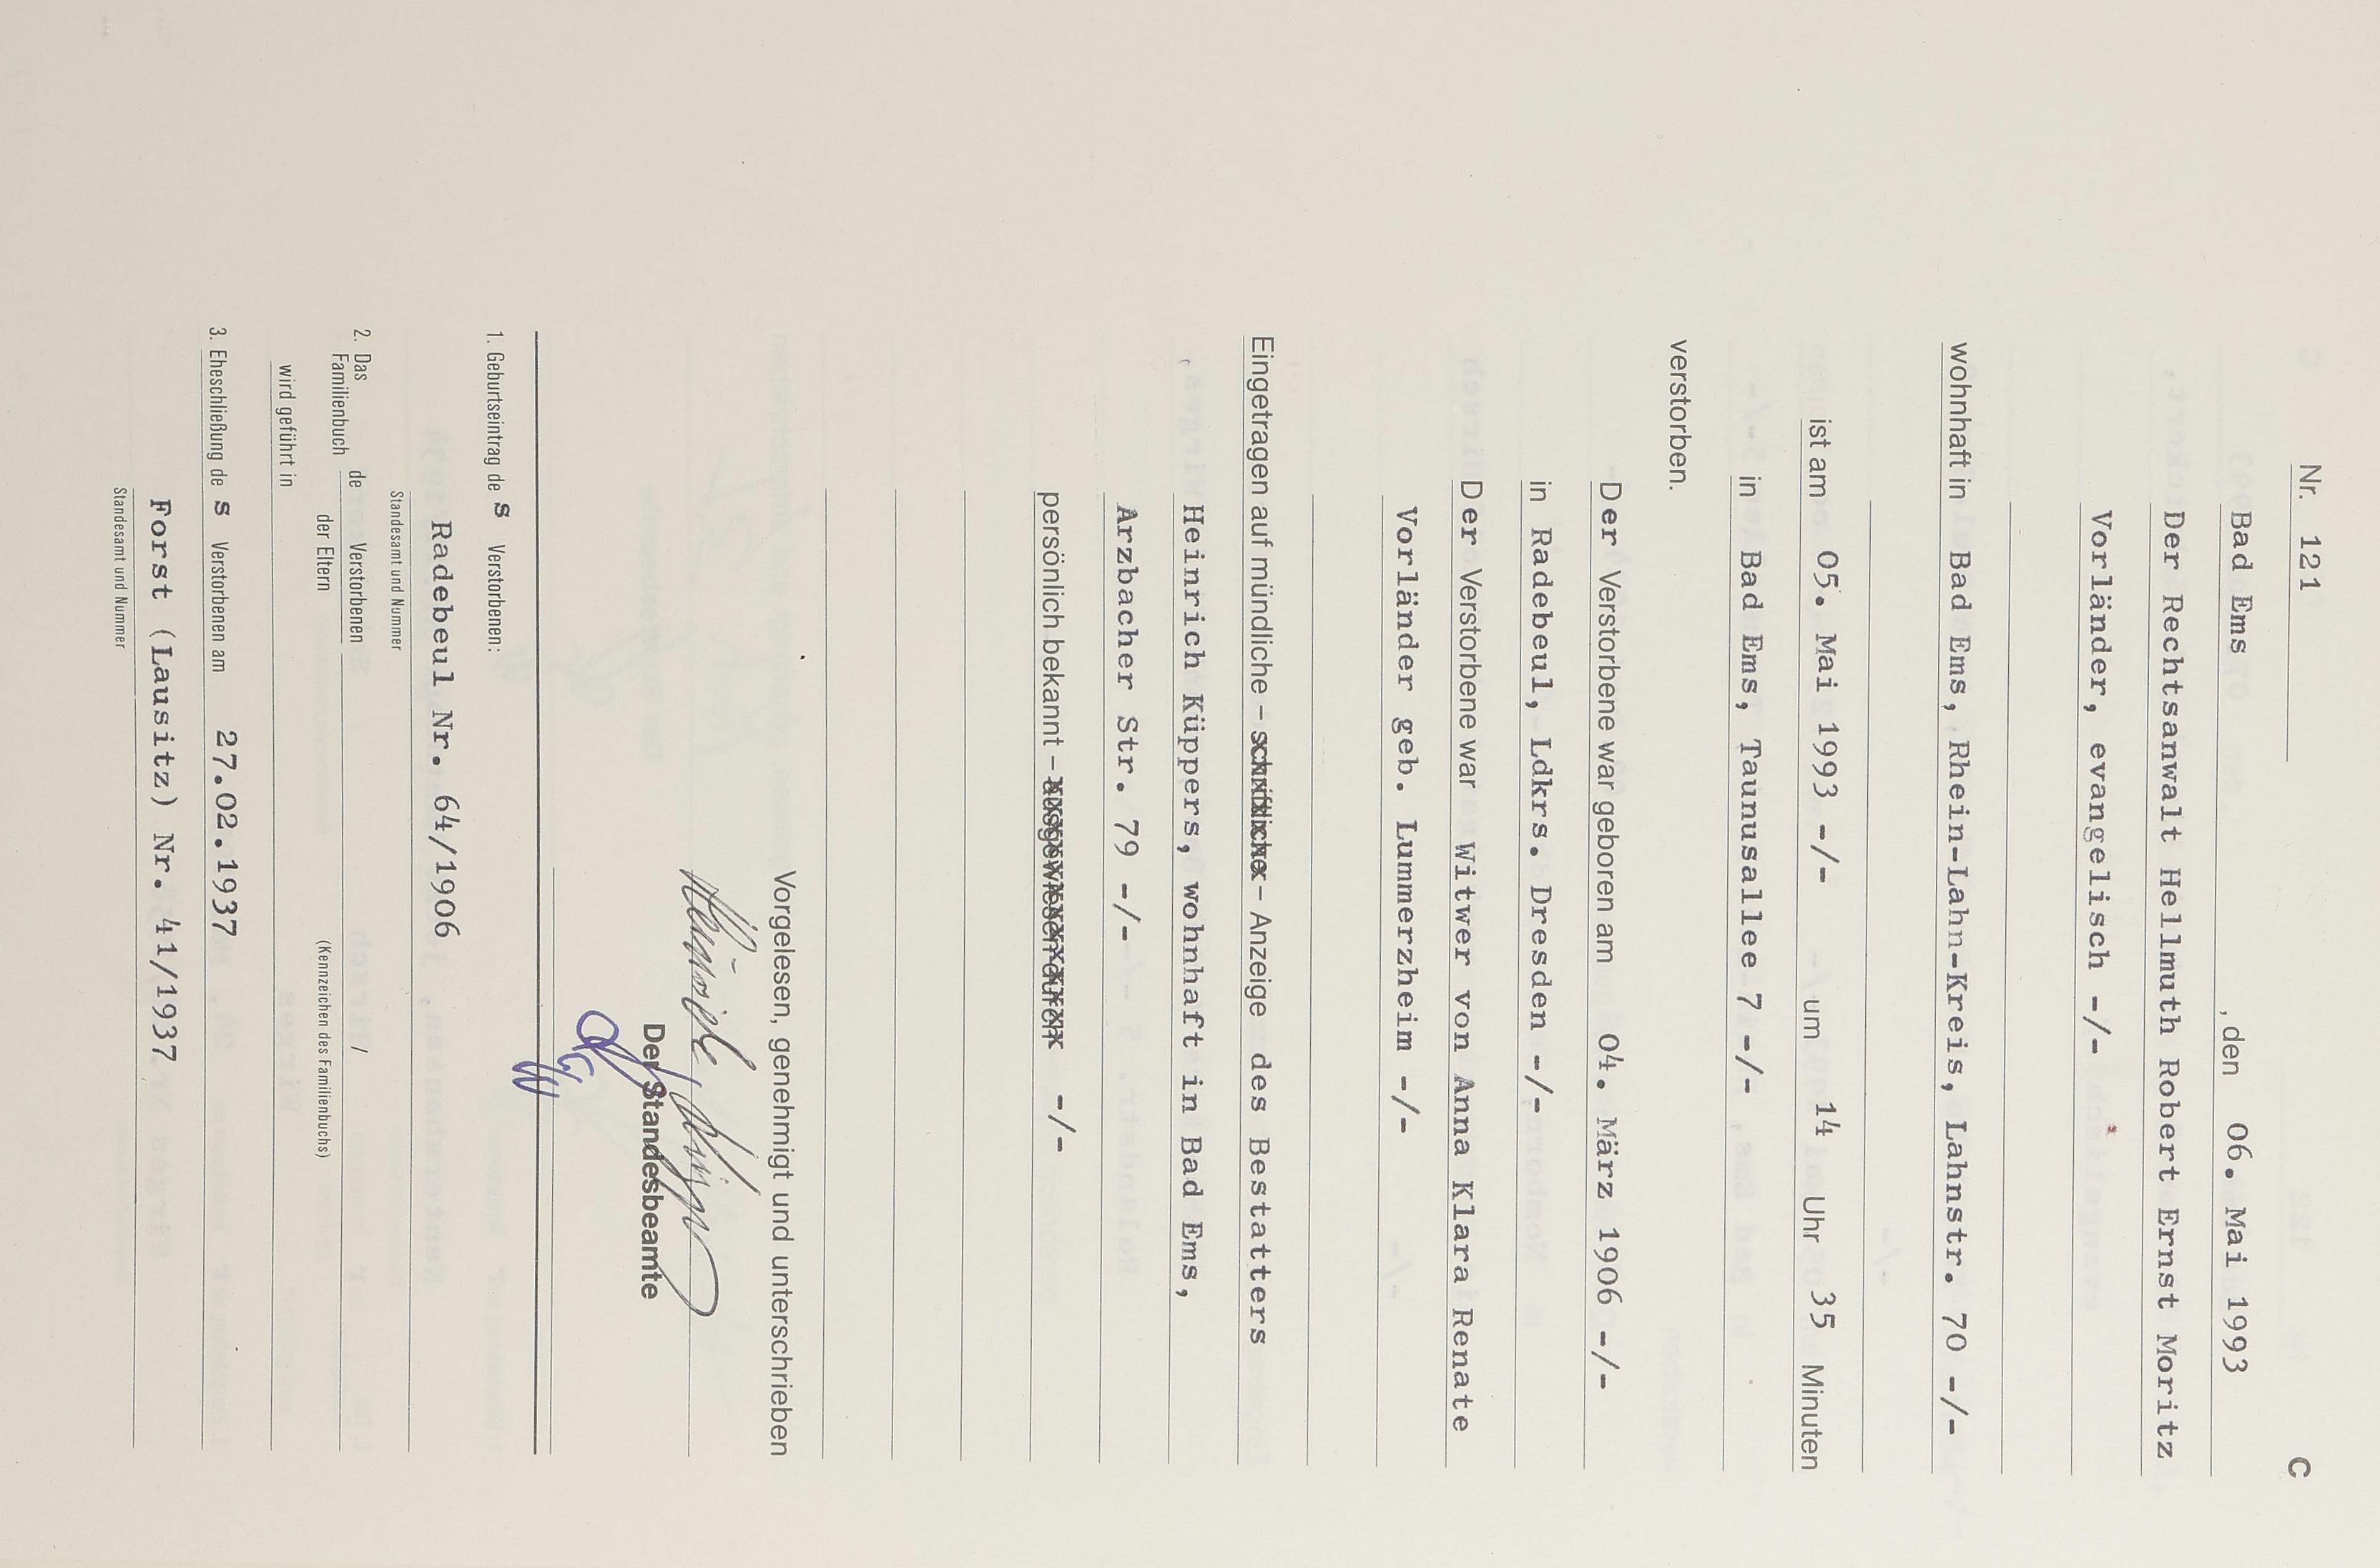 C
Nr. 121
Bad Ems , den 06. Mai 1993
Der Rechtsanwalt Hellmuth Robert Ernst Moritz
Vorländer, evangelisch -/-
wohnhaft in Bad Ems, Rhein-Lahn-Kreis, Lahnstr. 70 -/-
ist am 05. Mai 1993 -/- um 14 Uhr 35 Minuten
in Bad Ems, Taunusallee 7 -/-
verstorben.
Der Verstorbene war geboren am 04. März 1906 -/-
in Radebeul, Ldkrs. Dresden -/-
Der Verstorbene war Witwer von Anna Klara Renate
Vorländer geb. Lummerzheim -/-
Eingetragen auf mündliche – schriftliche – Anzeige des Bestatters
Heinrich Küppers, wohnhaft in Bad Ems,
Arzbacher Str. 79 -/-
persönlich bekannt – ausgewiesen durch -/-
Vorgelesen, genehmigt und unterschrieben
Heinrich Küppers
Der Standesbeamte
1. Geburtseintrag des Verstorbenen:
Radebeul Nr. 64/1906
Standesamt und Nummer
2. Das Familienbuch de Verstorbenen /
der Eltern (Kennzeichen des Familienbuchs)
wird geführt in
3. Eheschließung des Verstorbenen am 27.02.1937
Forst (Lausitz) Nr. 41/1937
Standesamt und Nummer